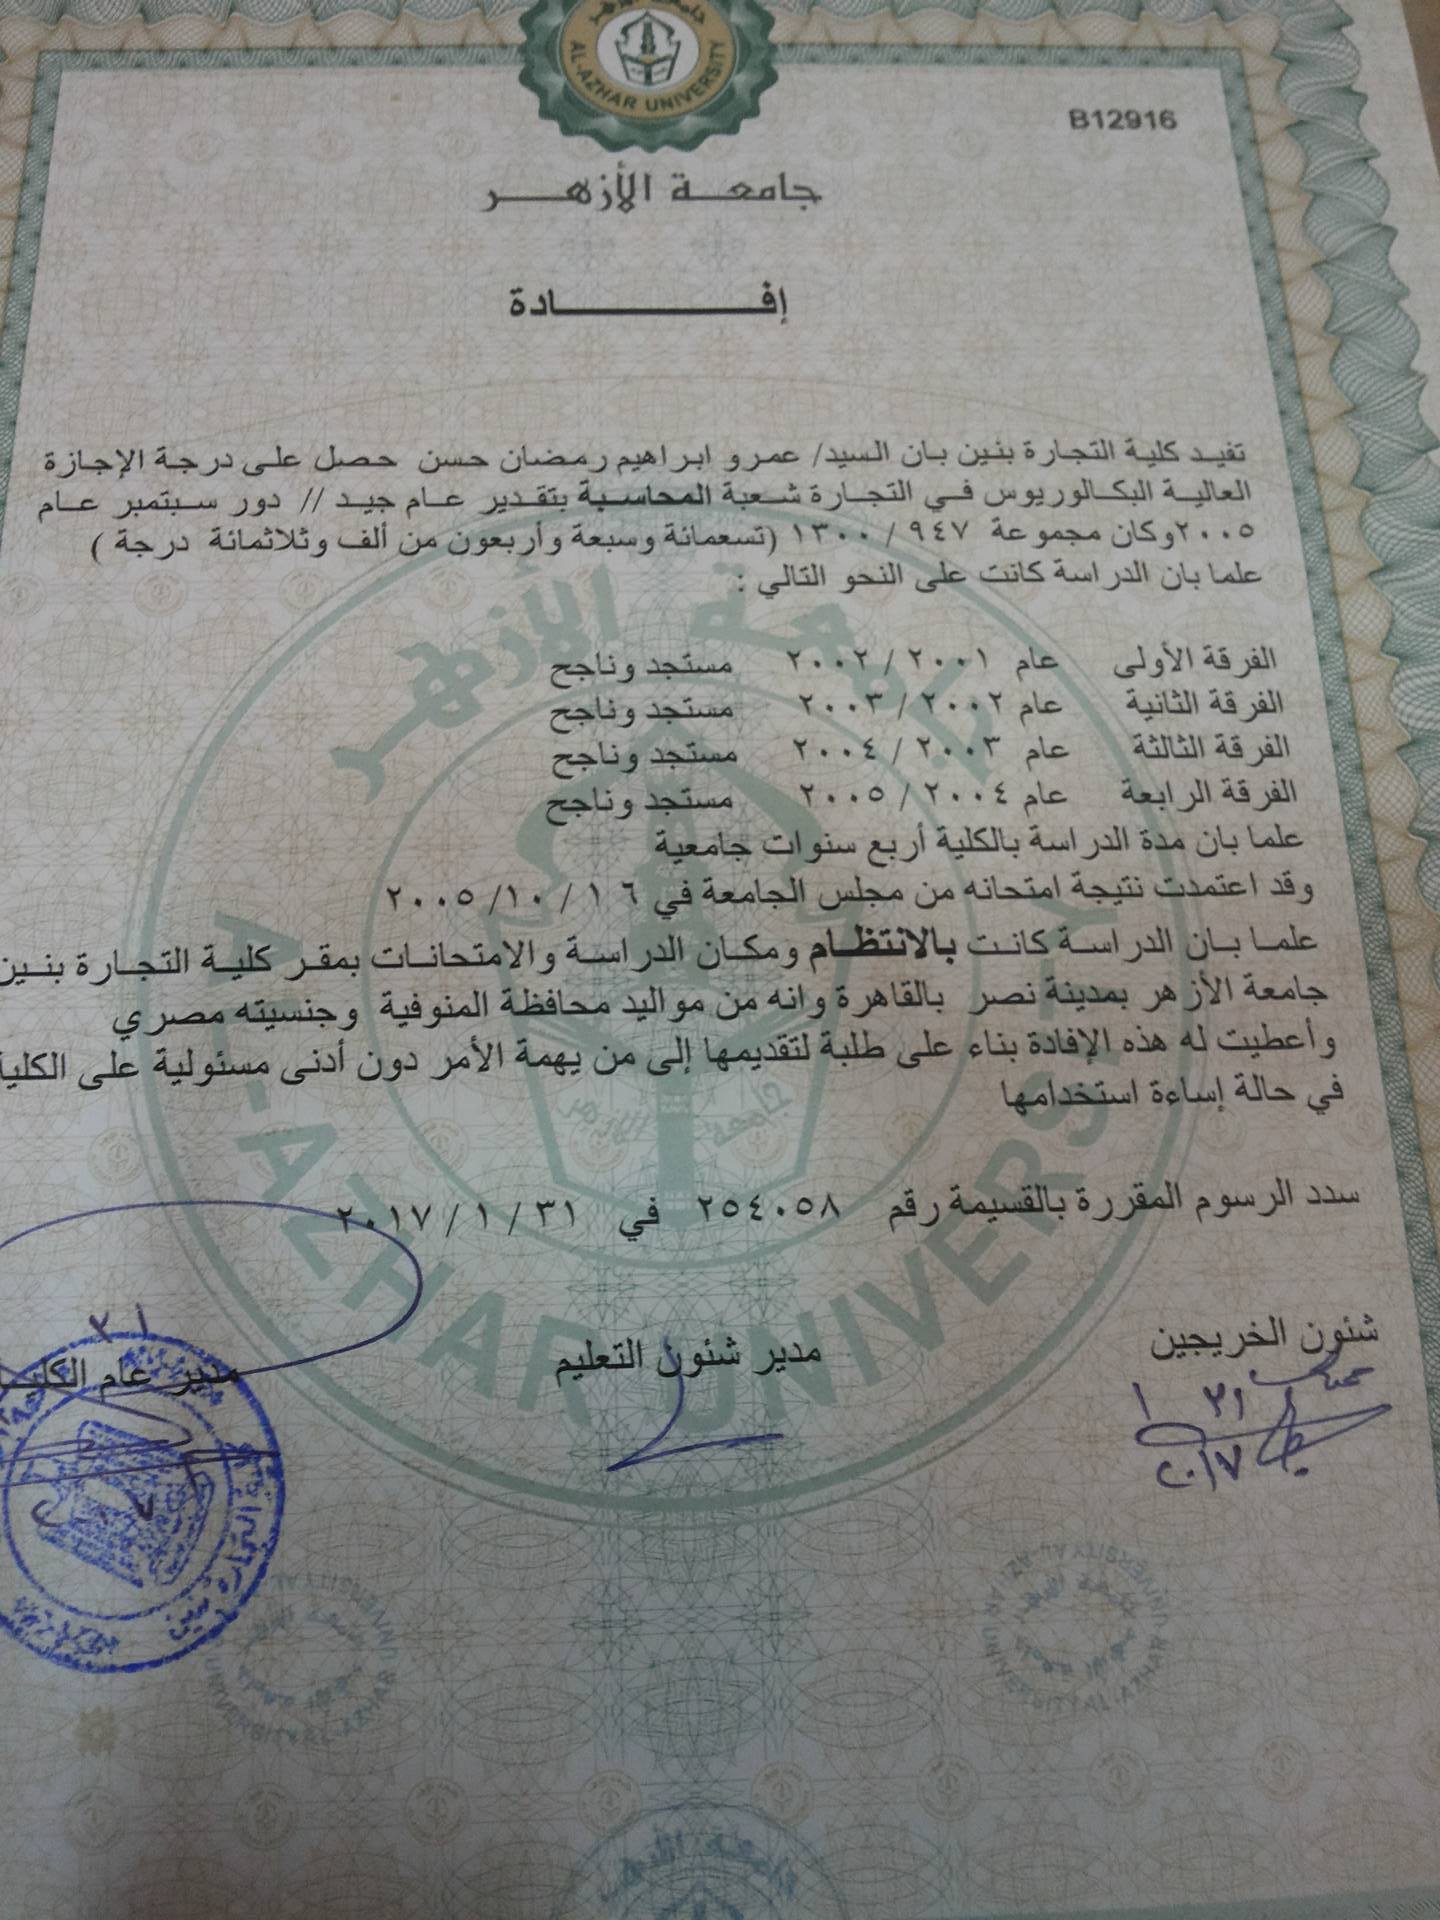 جامعة الأزهر
AL-AZHAR UNIVERSITY
B12916
جامعة الأزهر
إفادة
تفيد كلية التجارة بنين بان السيد/ عمرو ابراهيم رمضان حسن حصل على درجة الإجازة
العالية البكالوريوس في التجارة شعبة المحاسبة بتقدير عام جيد // دور سبتمبر عام
٢٠٠٥وكان مجموعة ٩٤٧ / ١٣٠٠ (تسعمائة وسبعة وأربعون من ألف وثلاثمائة درجة )
علما بان الدراسة كانت على النحو التالي :
الفرقة الأولى عام ٢٠٠١ / ٢٠٠٢ مستجد وناجح
الفرقة الثانية عام ٢٠٠٢ / ٢٠٠٣ مستجد وناجح
الفرقة الثالثة عام ٢٠٠٣ / ٢٠٠٤ مستجد وناجح
الفرقة الرابعة عام ٢٠٠٤ / ٢٠٠٥ مستجد وناجح
علما بان مدة الدراسة بالكلية أربع سنوات جامعية
وقد اعتمدت نتيجة امتحانه من مجلس الجامعة في ١٦ / ١٠ /٢٠٠٥
علما بان الدراسة كانت بالانتظام ومكان الدراسة والامتحانات بمقر كلية التجارة بنين
جامعة الأزهر بمدينة نصر بالقاهرة وانه من مواليد محافظة المنوفية وجنسيته مصري
وأعطيت له هذه الإفادة بناء على طلبة لتقديمها إلى من يهمة الأمر دون أدنى مسئولية على الكلية
في حالة إساءة استخدامها
سدد الرسوم المقررة بالقسيمة رقم ٢٥٤٠٥٨ في ٣١ / ١ / ٢٠١٧
شئون الخريجين
مدير شئون التعليم
مدير عام الكلية
٣١ ١
٢٠١٧
جامعة الأزهر
AL-AZHAR UNIVERSITY
جامعة الأزهر